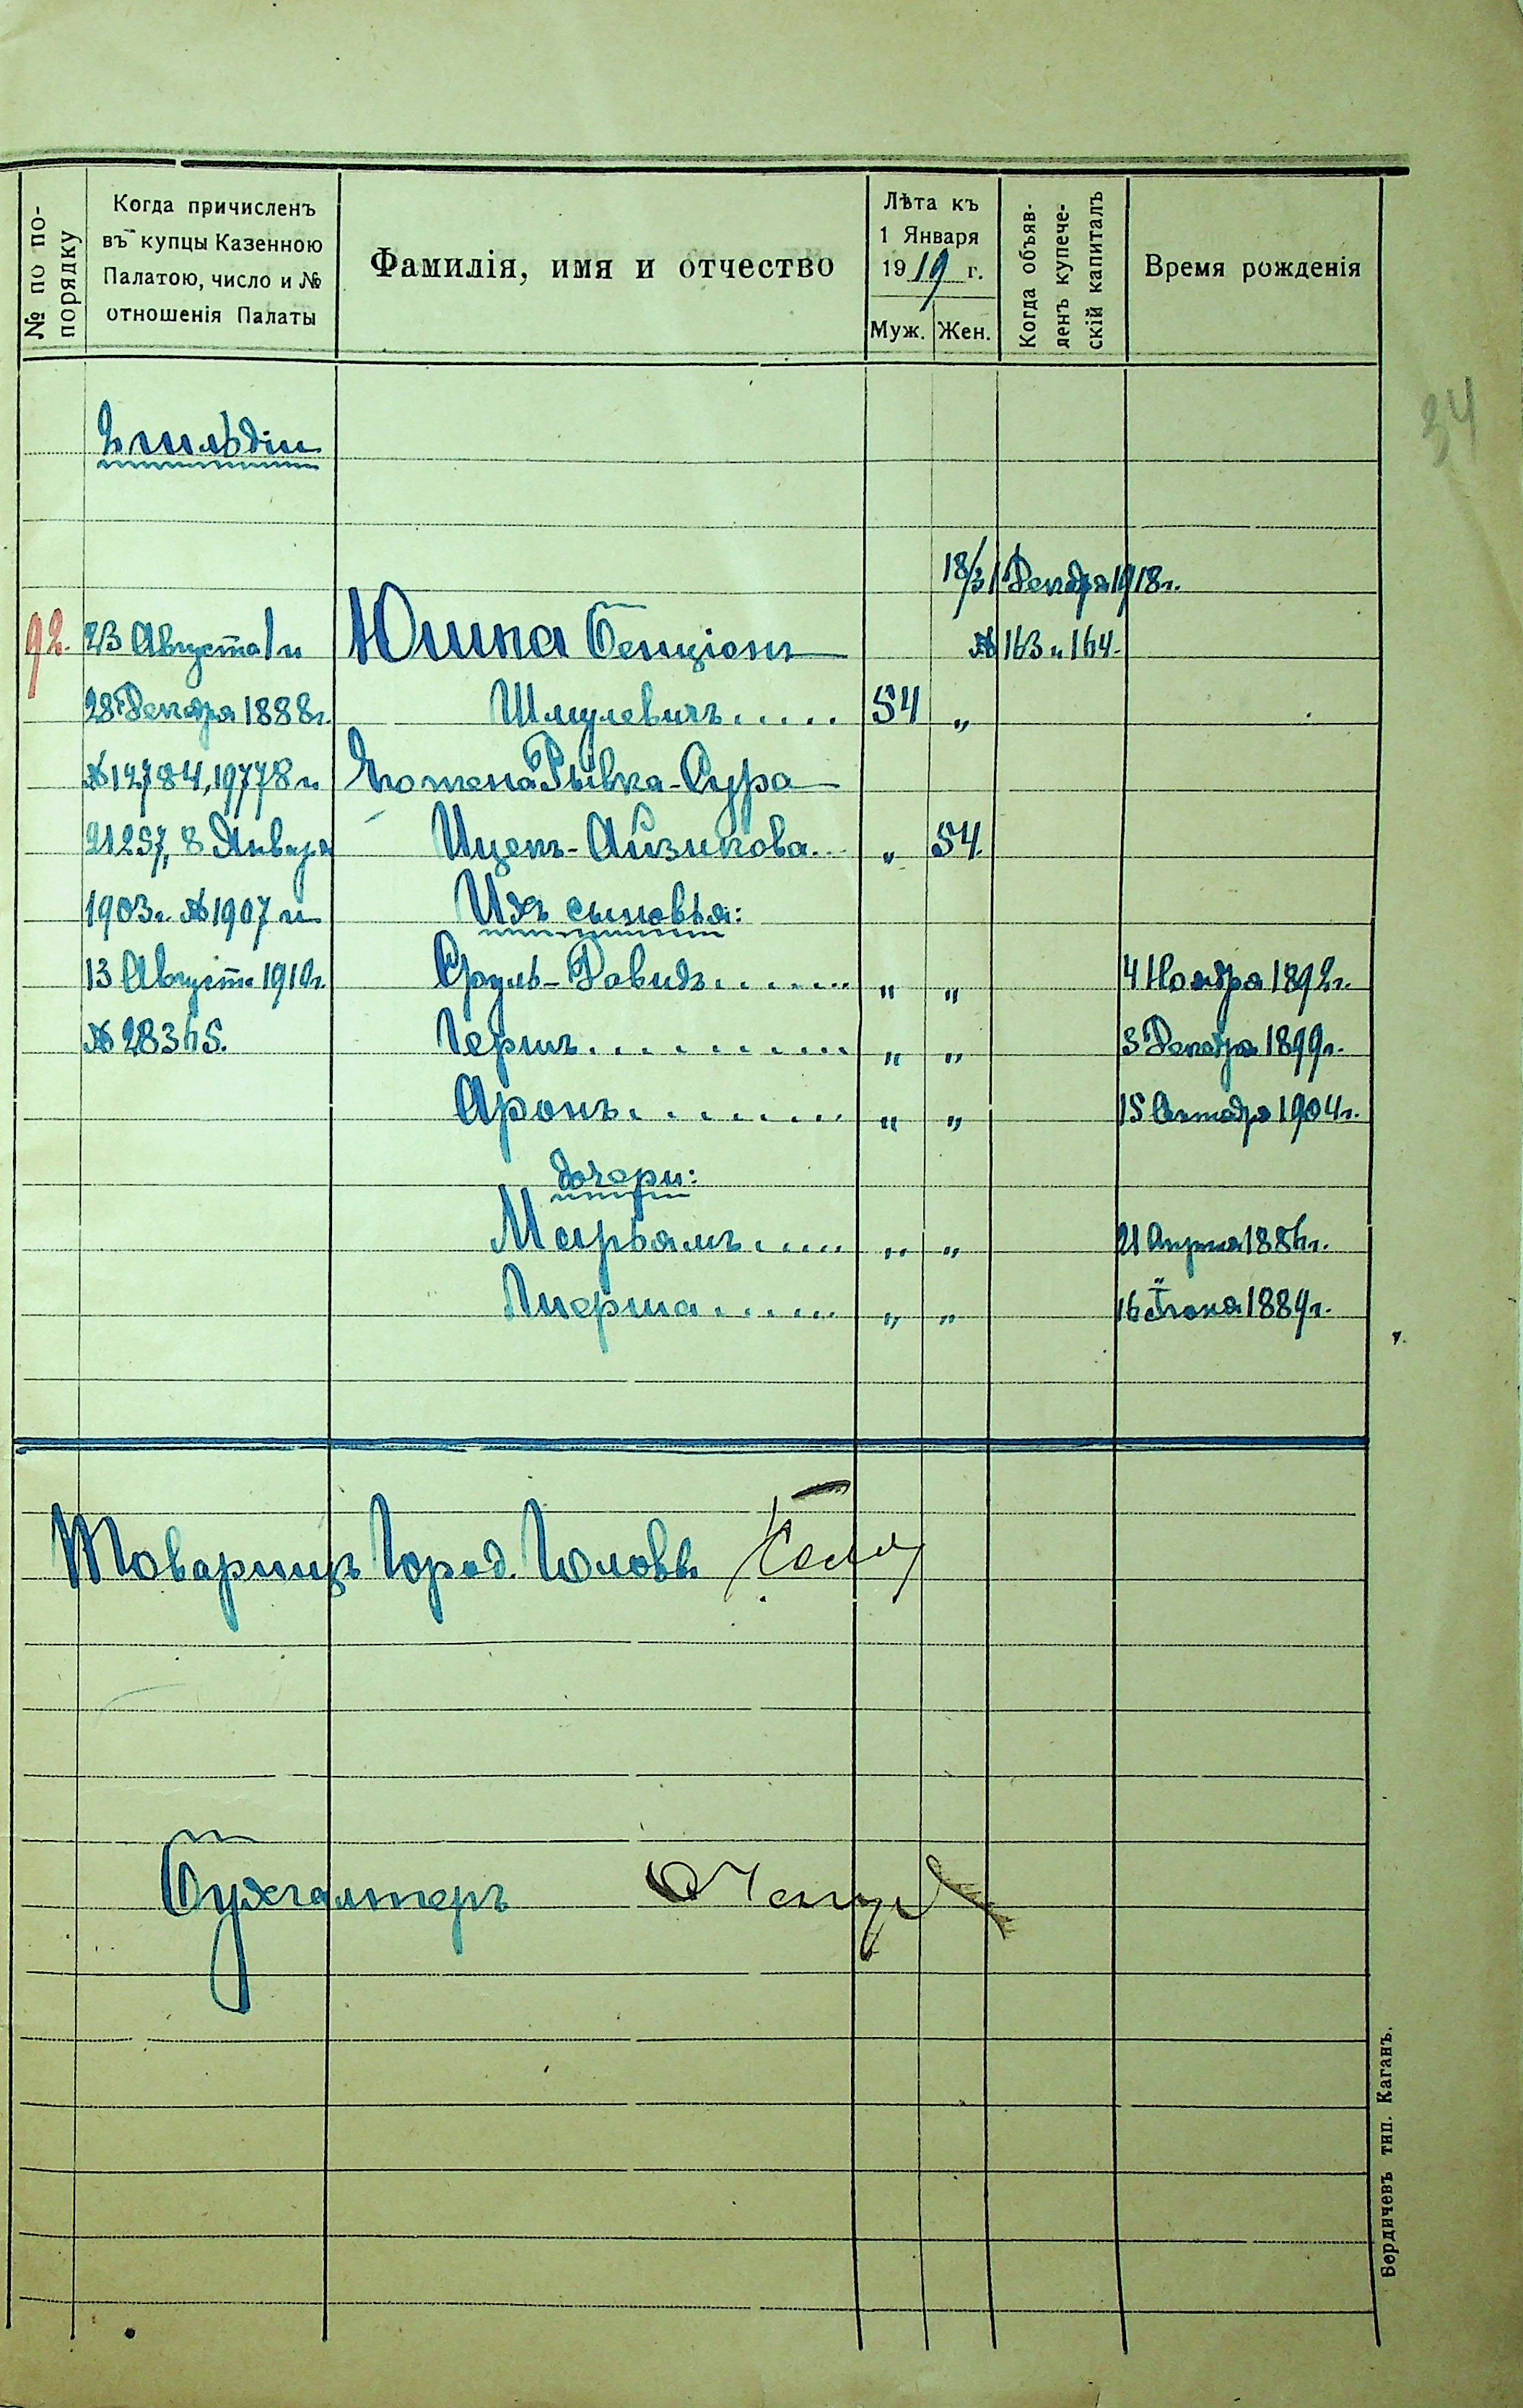 № по порядку
Когда причисленъ
въ купцы Казенною
Палатою, число и №
отношенія Палаты
Фамилія, имя и отчество
Лѣта къ
1 Января
1919 г.
Муж. Жен.
Когда объяв-
ленъ купече-
скій капиталъ
Время рожденія
34
2 гильдіи
18/31 Декабря 1918 г.
92. 23 Августа и Юшка Бенціонъ № 163 и 164.
28 Декабря 1888 г. Шмулевичъ..... 54 „
№ 12784, 19778 и Его жена Рывка-Сура
21257, 8 Января Ицекъ-Айзикова... „ 54.
1903 г. № 1907 и Ихъ сыновья:
13 Августа 1910 г. Сруль-Давидъ....... „ „ 4 Ноября 1892 г.
№ 28365. Гершъ.......... „ „ 3 Декабря 1899 г.
Аронъ........ „ „ 15 Октября 1904 г.
дочери:
Мирьямъ..... „ „ 21 Апреля 1886 г.
Гнерша...... „ „ 16 Іюня 1889 г.
Товарищъ Город. Головы
Бухгалтеръ
Бердичевъ тип. Каганъ.